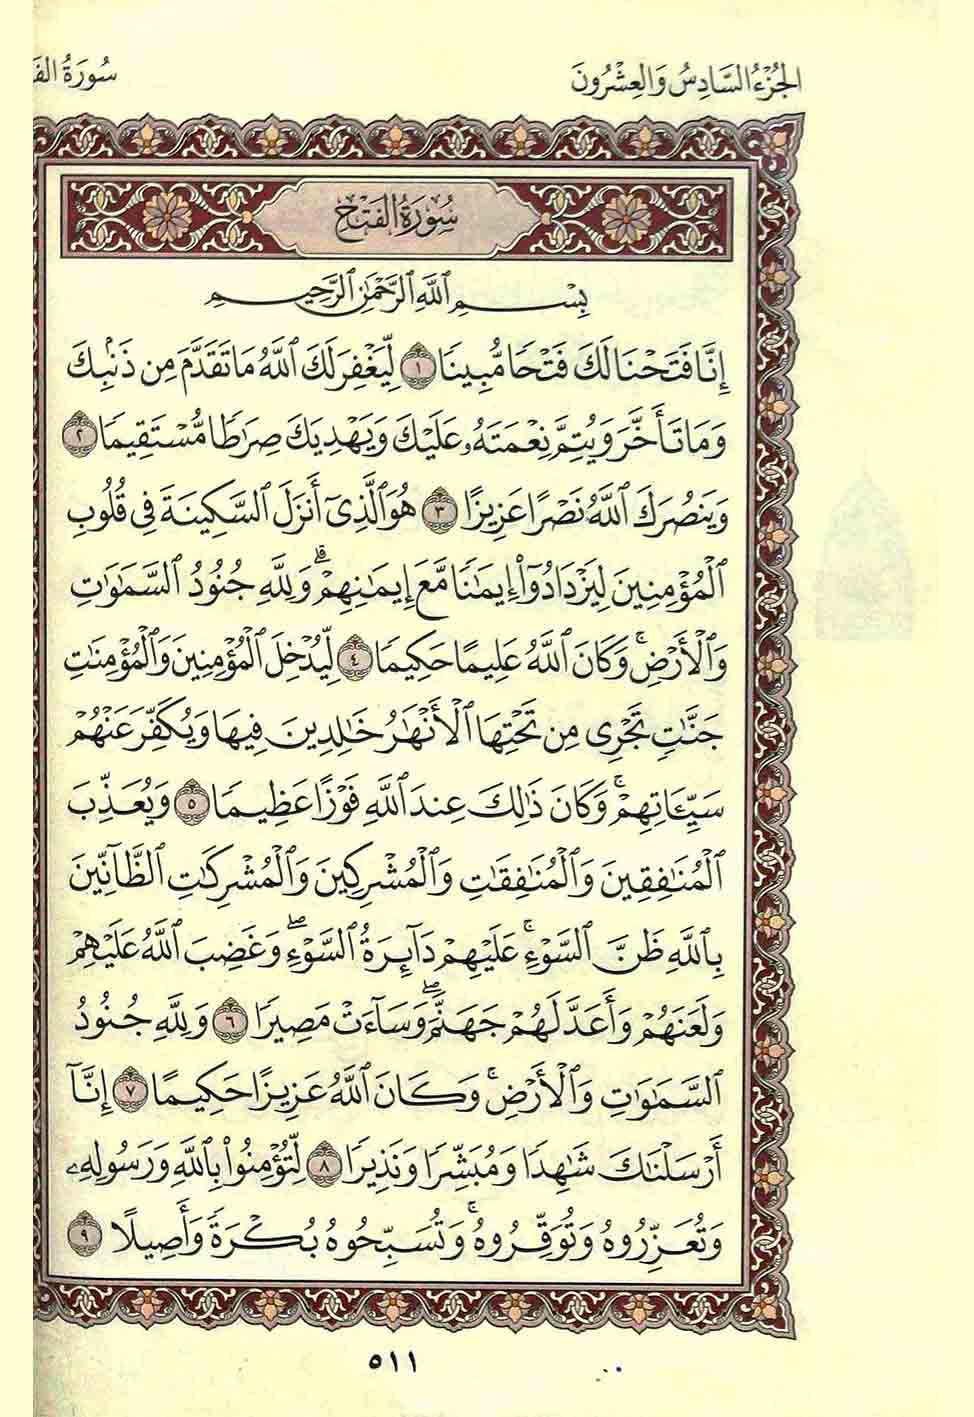 الجُزْءُ السَّادِسُ وَالعِشْرُونَ
سُورَةُ الفَ
سُورَةُ الفَتْحِ
بِسْمِ ٱللَّهِ ٱلرَّحْمَٰنِ ٱلرَّحِيمِ
إِنَّا فَتَحْنَا لَكَ فَتْحًا مُّبِينًا ١ لِّيَغْفِرَ لَكَ ٱللَّهُ مَا تَقَدَّمَ مِن ذَنۢبِكَ
وَمَا تَأَخَّرَ وَيُتِمَّ نِعْمَتَهُۥ عَلَيْكَ وَيَهْدِيَكَ صِرَٰطًا مُّسْتَقِيمًا ٢
وَيَنصُرَكَ ٱللَّهُ نَصْرًا عَزِيزًا ٣ هُوَ ٱلَّذِىٓ أَنزَلَ ٱلسَّكِينَةَ فِى قُلُوبِ
ٱلْمُؤْمِنِينَ لِيَزْدَادُوٓا۟ إِيمَٰنًا مَّعَ إِيمَٰنِهِمْ ۗ وَلِلَّهِ جُنُودُ ٱلسَّمَٰوَٰتِ
وَٱلْأَرْضِ ۚ وَكَانَ ٱللَّهُ عَلِيمًا حَكِيمًا ٤ لِّيُدْخِلَ ٱلْمُؤْمِنِينَ وَٱلْمُؤْمِنَٰتِ
جَنَّٰتٍ تَجْرِى مِن تَحْتِهَا ٱلْأَنْهَٰرُ خَٰلِدِينَ فِيهَا وَيُكَفِّرَ عَنْهُمْ
سَيِّـَٔاتِهِمْ ۚ وَكَانَ ذَٰلِكَ عِندَ ٱللَّهِ فَوْزًا عَظِيمًا ٥ وَيُعَذِّبَ
ٱلْمُنَٰفِقِينَ وَٱلْمُنَٰفِقَٰتِ وَٱلْمُشْرِكِينَ وَٱلْمُشْرِكَٰتِ ٱلظَّآنِّينَ
بِٱللَّهِ ظَنَّ ٱلسَّوْءِ ۚ عَلَيْهِمْ دَآئِرَةُ ٱلسَّوْءِ ۖ وَغَضِبَ ٱللَّهُ عَلَيْهِمْ
وَلَعَنَهُمْ وَأَعَدَّ لَهُمْ جَهَنَّمَ ۖ وَسَآءَتْ مَصِيرًا ٦ وَلِلَّهِ جُنُودُ
ٱلسَّمَٰوَٰتِ وَٱلْأَرْضِ ۚ وَكَانَ ٱللَّهُ عَزِيزًا حَكِيمًا ٧ إِنَّآ
أَرْسَلْنَٰكَ شَٰهِدًا وَمُبَشِّرًا وَنَذِيرًا ٨ لِّتُؤْمِنُوا۟ بِٱللَّهِ وَرَسُولِهِۦ
وَتُعَزِّرُوهُ وَتُوَقِّرُوهُ ۚ وَتُسَبِّحُوهُ بُكْرَةً وَأَصِيلًا ٩
٥١١